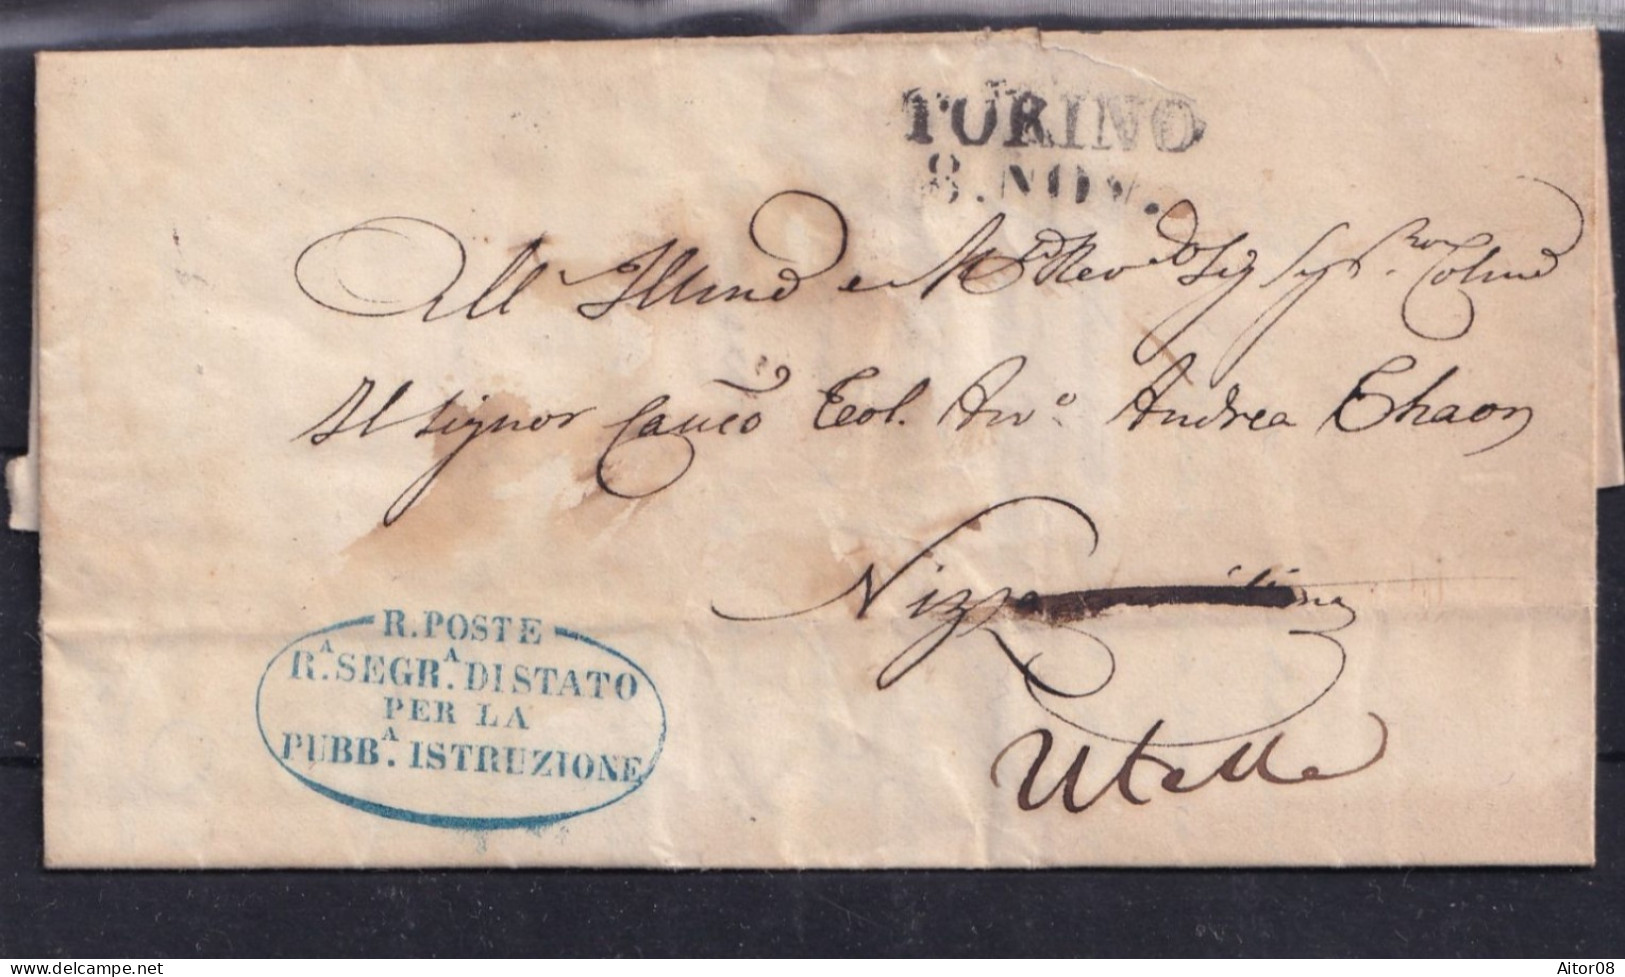 TORINO
8. NOV.
All' Illmo e M.to Rev.do Sig Sig.r Colmo
Al Signor Can.co Teol. Avv.o Andrea Chaon
Nizza
Utelle
R. POSTE
R.A SEGR.A DI STATO
PER LA
PUBB.A ISTRUZIONE
delcampe.net
Aitor08